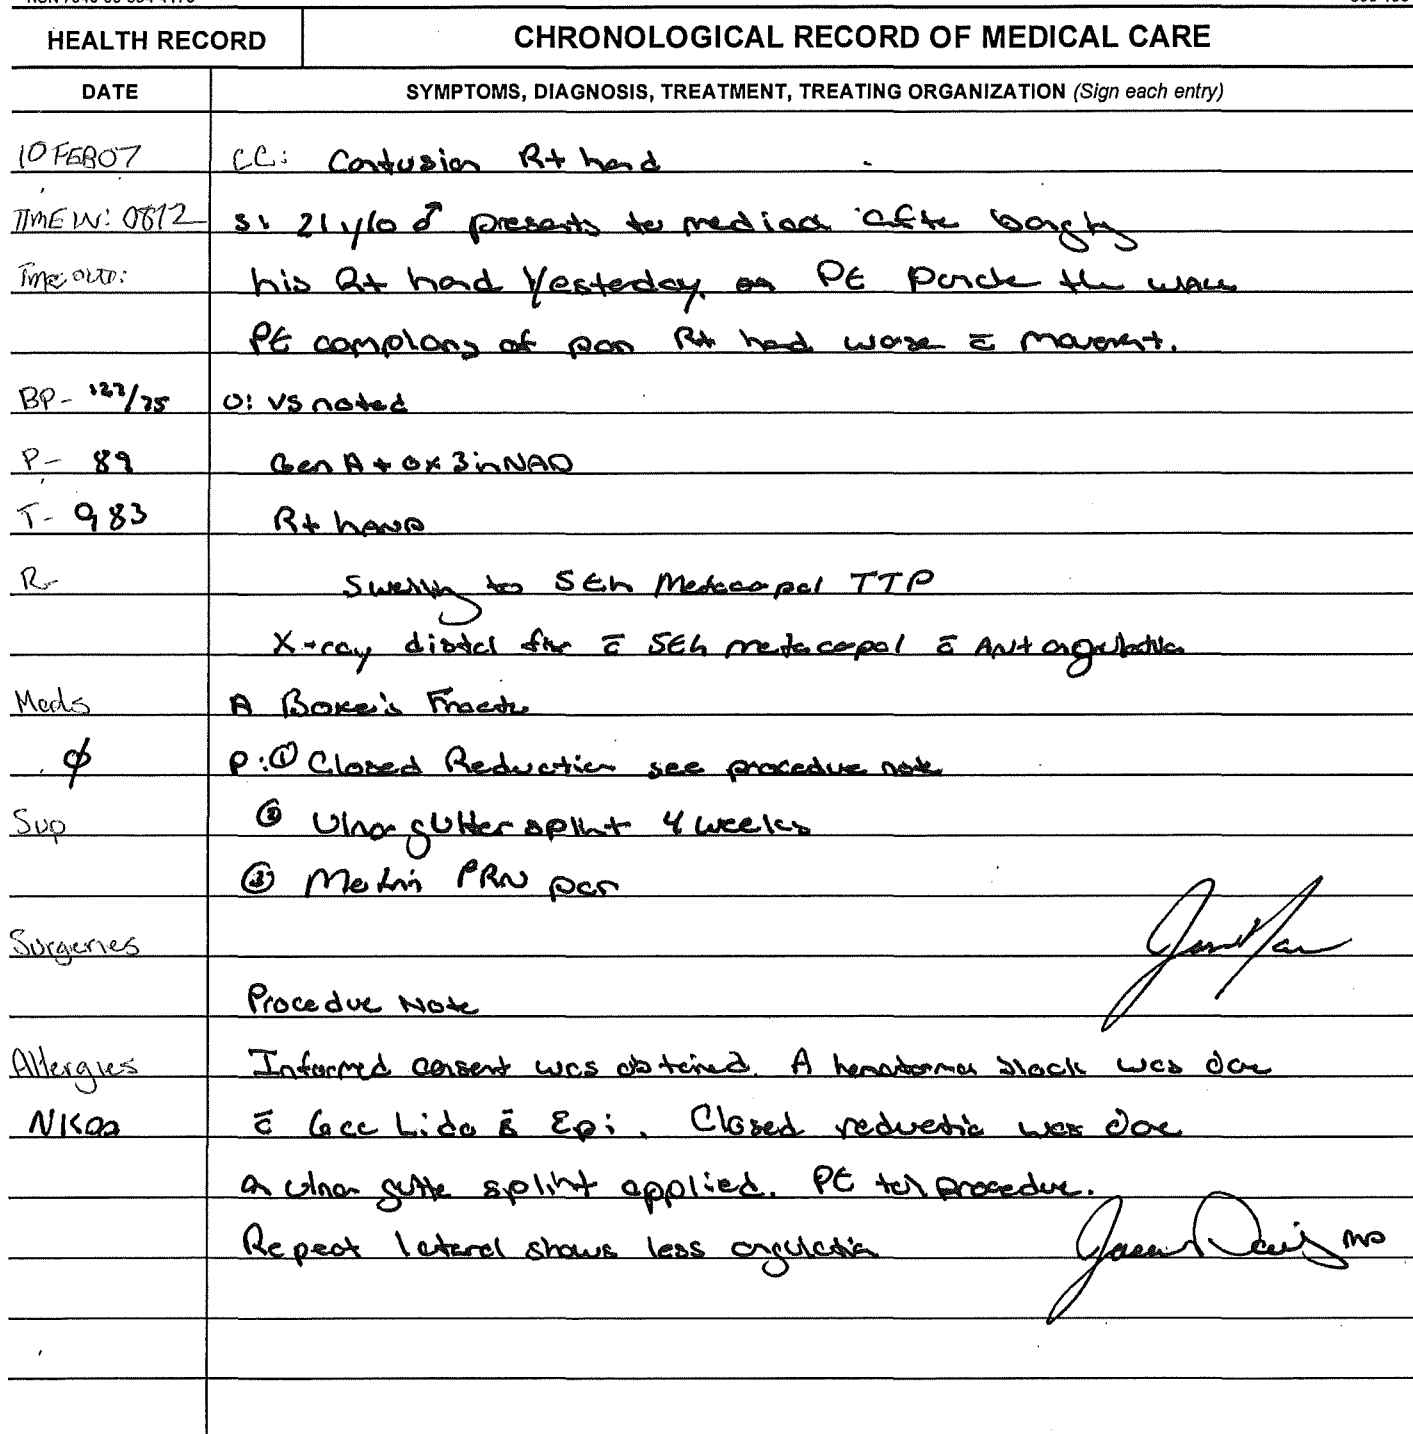 HEALTH RECORD
CHRONOLOGICAL RECORD OF MEDICAL CARE
DATE
SYMPTOMS, DIAGNOSIS, TREATMENT, TREATING ORGANIZATION (Sign each entry)
10 FEB 07 CC: Contusion Rt hand
TIME IN: 0812 S: 21 y/o ♂ presents to medical after
Time out: his Rt hand yesterday, Pt the wall
Pt complains of pain Rt hand worse c̄ movement.
BP- 122/75 O: VS noted
P- 89 Gen A + Ox 3 in NAD
T- 983 Rt hand
R- Swelling to 5th Metacarpal TTP
X-ray distal c̄ 5th metacarpal c̄ Ant angulation
Meds A Boxer's Fracture
ϕ P: ① Closed Reduction see procedure note
Sup ② Ulnar gutter splint 4 weeks
③ Motrin PRN pain
Surgeries
Procedure Note
Allergies Informed consent was obtained. A hematoma block was done
NKDA c̄ 6cc Lido s̄ Epi. Closed reduction was done
ulnar gutter splint applied. Pt tol procedure.
Repeat lateral shows less angulation MD